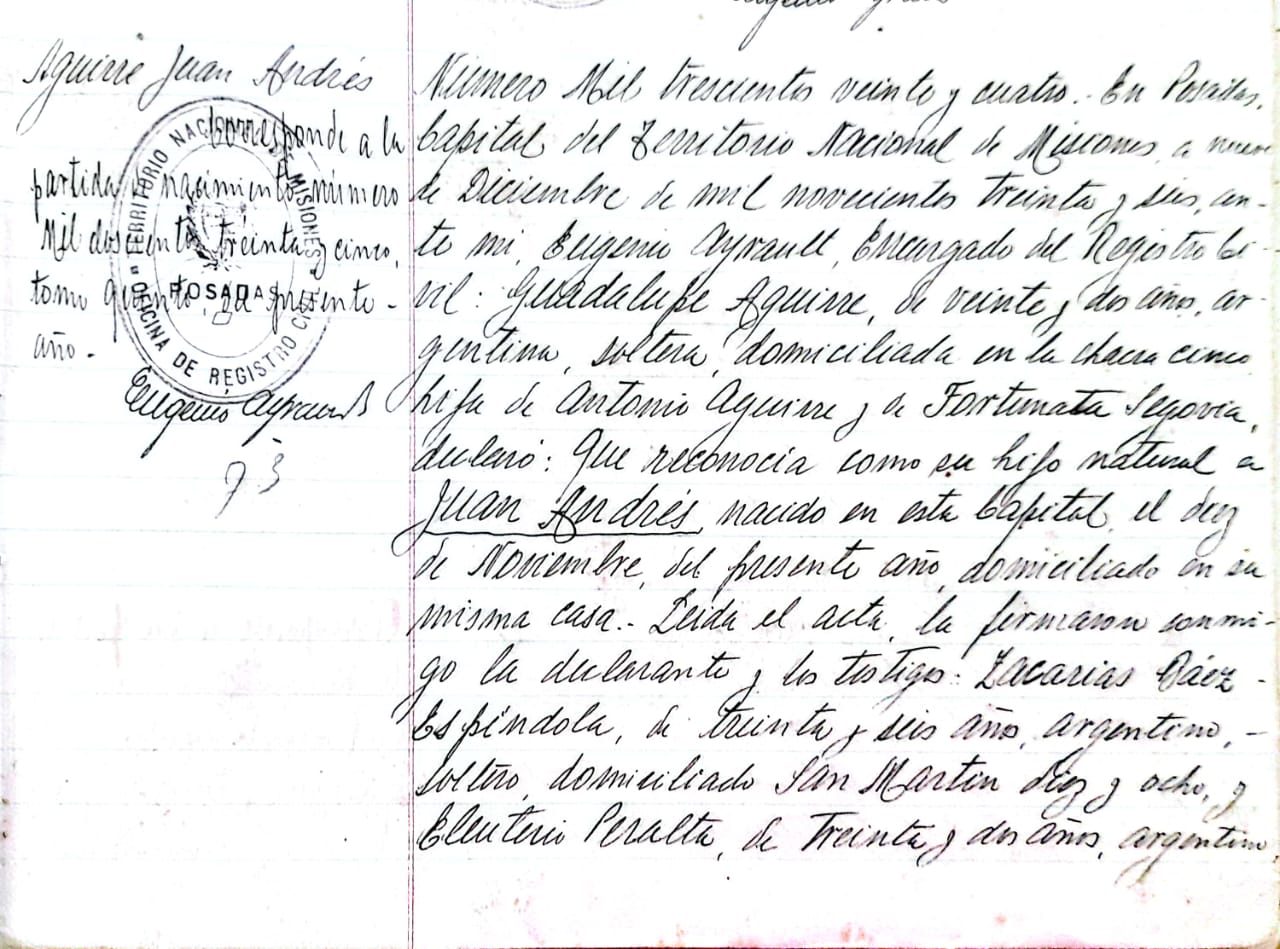 Aguirre Juan Andrés
Corresponde a la
partida de nacimiento número
Mil doscientos treinta y cinco,
tomo quinto, del presente -
año.-
Eugenio Ayrault
73
TERRITORIO NACIONAL DE MISIONES
POSADAS
OFICINA DE REGISTRO CIVIL
Número Mil trescientos veinte y cuatro.- En Posadas,
Capital del Territorio Nacional de Misiones, a nueve
de Diciembre de mil novecientos treinta y seis, an-
te mi, Eugenio Ayrault, Encargado del Registro Ci-
vil: Guadalupe Aguirre, de veinte y dos años, ar-
gentina, soltera, domiciliada en la chacra cinco
hija de Antonio Aguirre y de Fortunata Segovia,
declaró: Que reconocia como su hijo natural a
Juan Andrés, nacido en esta Capital, el diez
de Noviembre, del presente año, domiciliado en su
misma casa.- Leida el acta, la firmaron conmi-
go la declarante y los testigos: Zacarias Báez -
Espíndola, de treinta y seis años, argentino, -
soltero, domiciliado San Martin diez y ocho, y
Eleuterio Peralta, de treinta y dos años, argentino